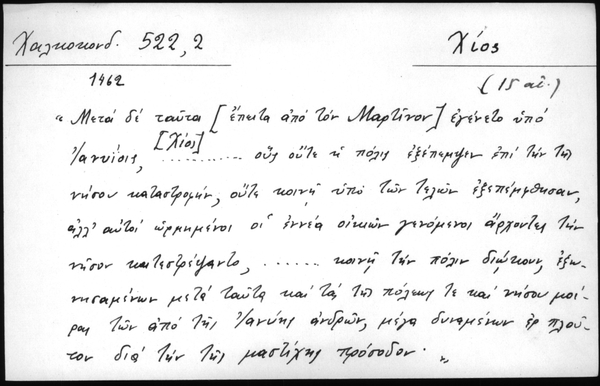 Χαλκοκονδ. 522,2 Χίος
1462 (15 αἰ.)
" Μετά δέ ταῦτα [ἔπειτα ἀπό τόν Μαρτῖνον] ἐγένετο ὑπό
Ἰανυΐοις, [Χίος] ............ οὕς οὔτε ἡ πόλις ἐξέπεμψεν ἐπί τήν τῆς
νήσου καταστροφήν, οὔτε κοινῇ ὑπό τῶν τελῶν ἐξεπέμφθησαν,
ἀλλ' αὐτοί ὡρμημένοι οἱ ἐννέα οἰκιῶν γενόμενοι ἄρχοντες τήν
νῆσον κατεστρέψαντο, ...... κοινῇ τήν πόλιν διῴκουν, ἐξω-
νησαμένων μετά ταῦτα καί τάς τῆς πόλεως τε καί νήσου μοί-
ρας τῶν ἀπό τῆς Ἰανύης ἀνδρῶν, μέγα δυναμένων ἐπ πλού-
τον διά τήν τῆς μαστίχης πρόσοδον. "